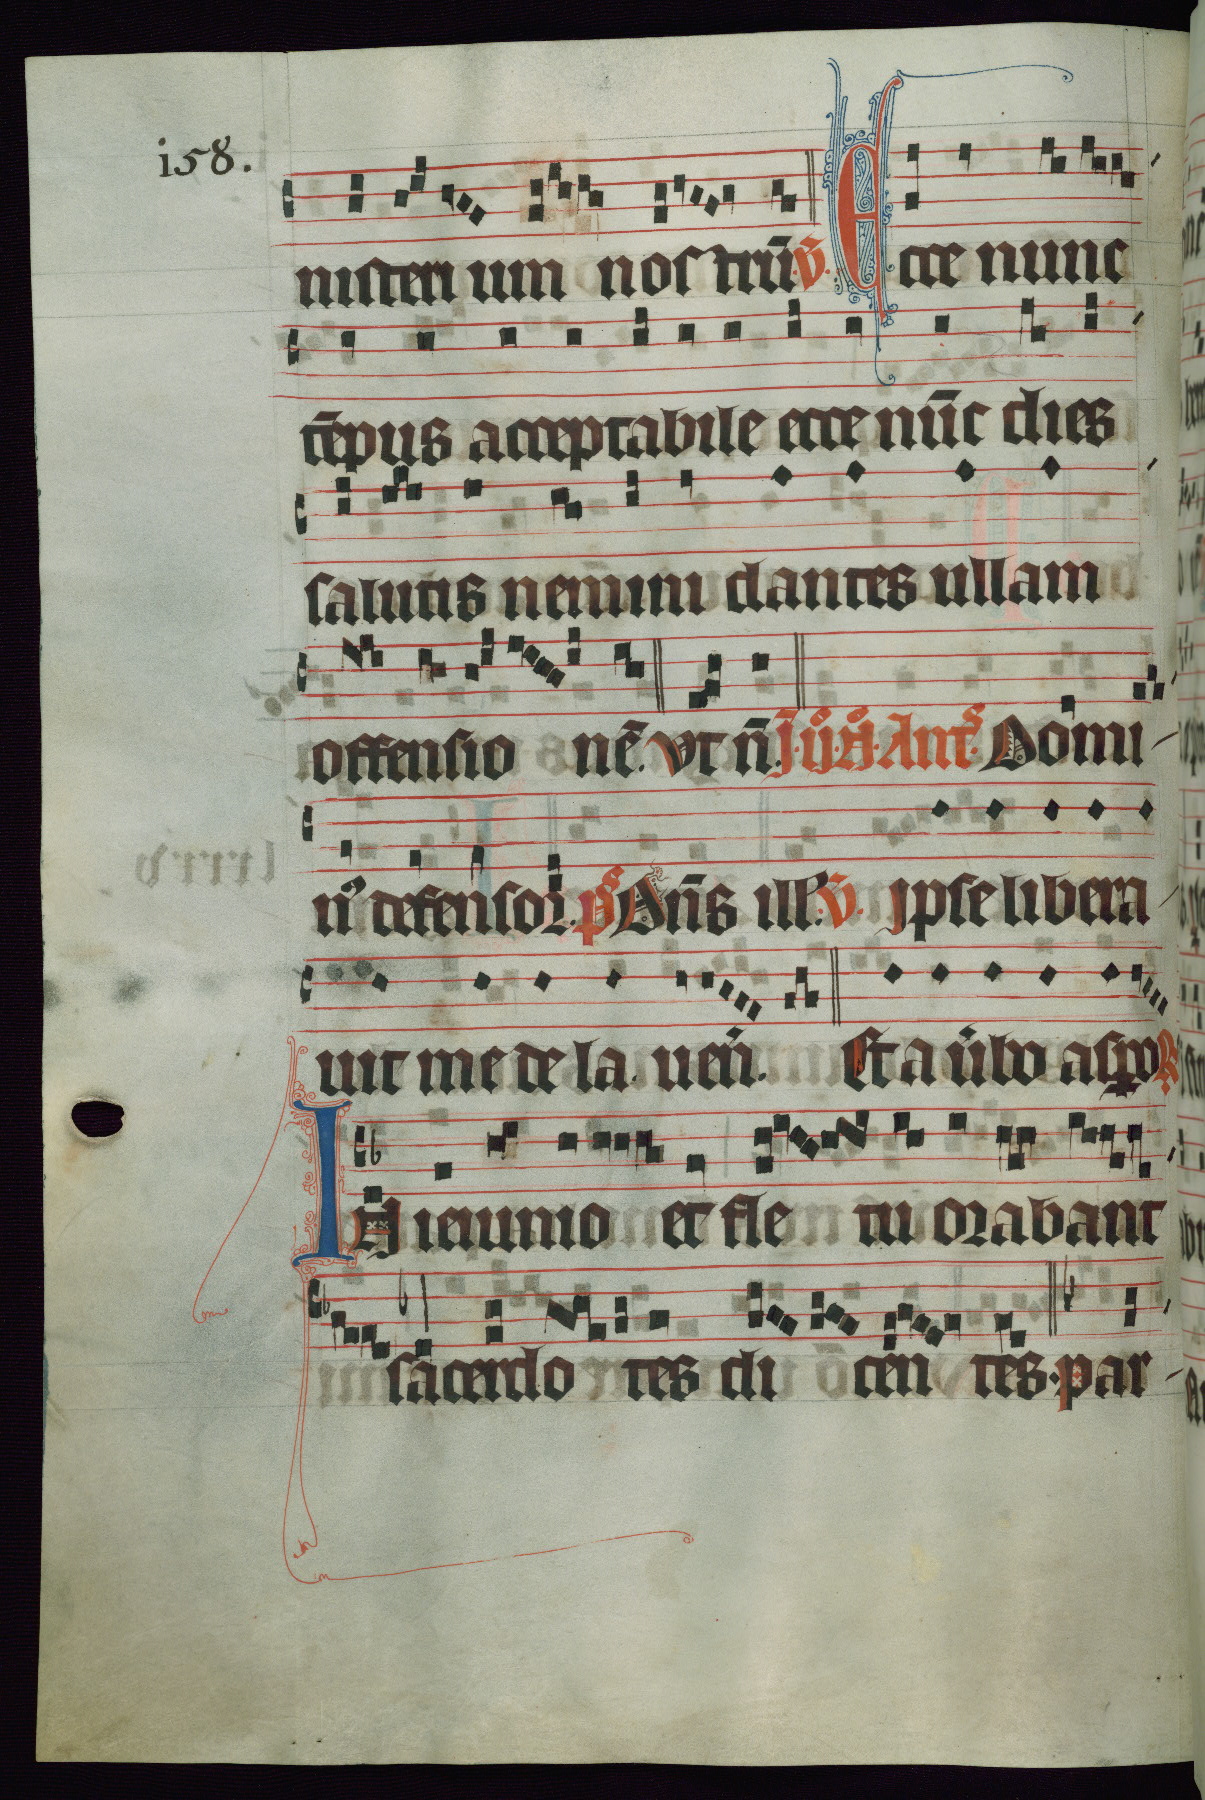 i58.
nisteri um nos trū. v̄. Ecce nunc
tēpus acceptabile ecce nūc dies
salutis nemini dantes ullam
offensio nē. vt n̄. J. ii. Ā. Ant̄. Domi
n̄ defensor. ps Dn̄s ill. v̄. Jpse libera
uit me de la. uen̄. Et a ūbo aspo R
IN ieiunio et fle tu orabant
sacerdo tes di cen tes. par